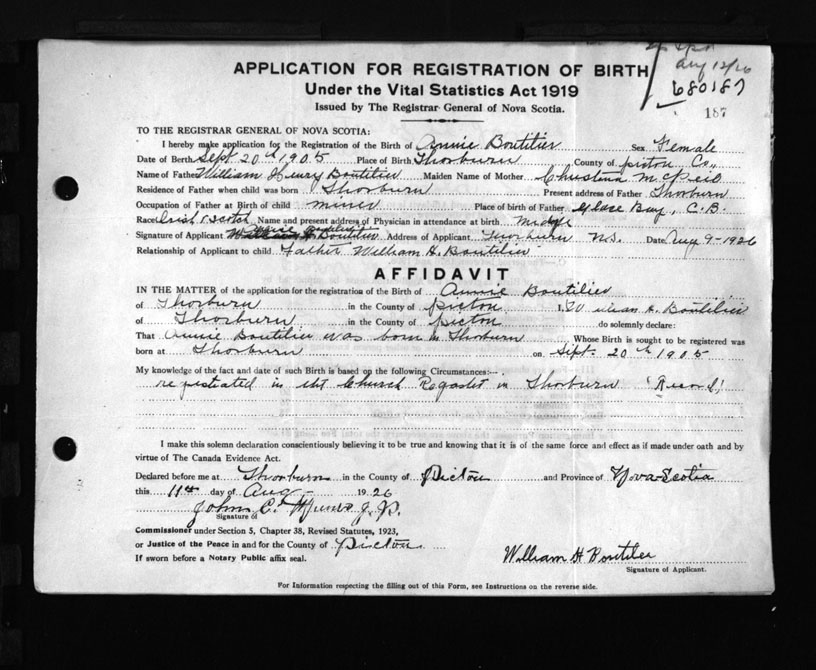 Aug 12/26
680187
187
APPLICATION FOR REGISTRATION OF BIRTH
Under the Vital Statistics Act 1919
Issued by The Registrar General of Nova Scotia.
TO THE REGISTRAR GENERAL OF NOVA SCOTIA:
I hereby make application for the Registration of the Birth of Annie Boutilier Sex Female
Date of Birth Sept 20th 1905 Place of Birth Thorburn County of Picton Co.,
Name of Father William Henry Boutilier Maiden Name of Mother Christena
Residence of Father when child was born Thorburn Present address of Father Thorburn
Occupation of Father at Birth of child miner Place of birth of Father Glace Bay, C.B.
Race Irish Name and present address of Physician in attendance at birth
Signature of Applicant Address of Applicant Thorburn N.S. Date Aug 9-1926
Relationship of Applicant to child Father William H. Boutilier
AFFIDAVIT
IN THE MATTER of the application for the registration of the Birth of Annie Boutilier
of Thorburn in the County of Picton I, William H. Boutilier
of Thorburn in the County of Picton do solemnly declare:
That Annie Boutilier was born in Thorburn Whose Birth is sought to be registered was
born at Thorburn on Sept. 20th 1905
My knowledge of the fact and date of such Birth is based on the following Circumstances:-
in the Church in Thorburn Record
I make this solemn declaration conscientiously believing it to be true and knowing that it is of the same force and effect as if made under oath and by
virtue of The Canada Evidence Act.
Declared before me at Thorburn in the County of Picton and Province of Nova Scotia
this 11th day of Aug 1926
John C. Munro J.P.
Signature of
Commissioner under Section 5, Chapter 38, Revised Statutes, 1923,
or Justice of the Peace in and for the County of Picton
If sworn before a Notary Public affix seal.
William H Boutilier
Signature of Applicant.
For Information respecting the filling out of this Form, see Instructions on the reverse side.